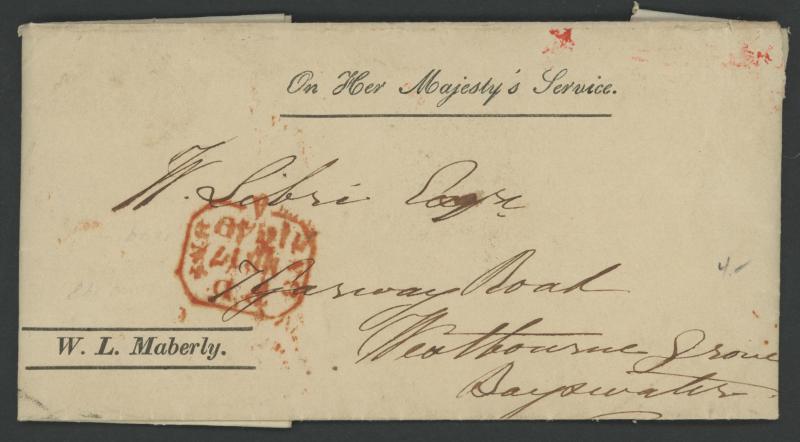 On Her Majesty's Service.
W. Libri Esqre
Road
Westbourne Grove
Bayswater
W. L. Maberly.